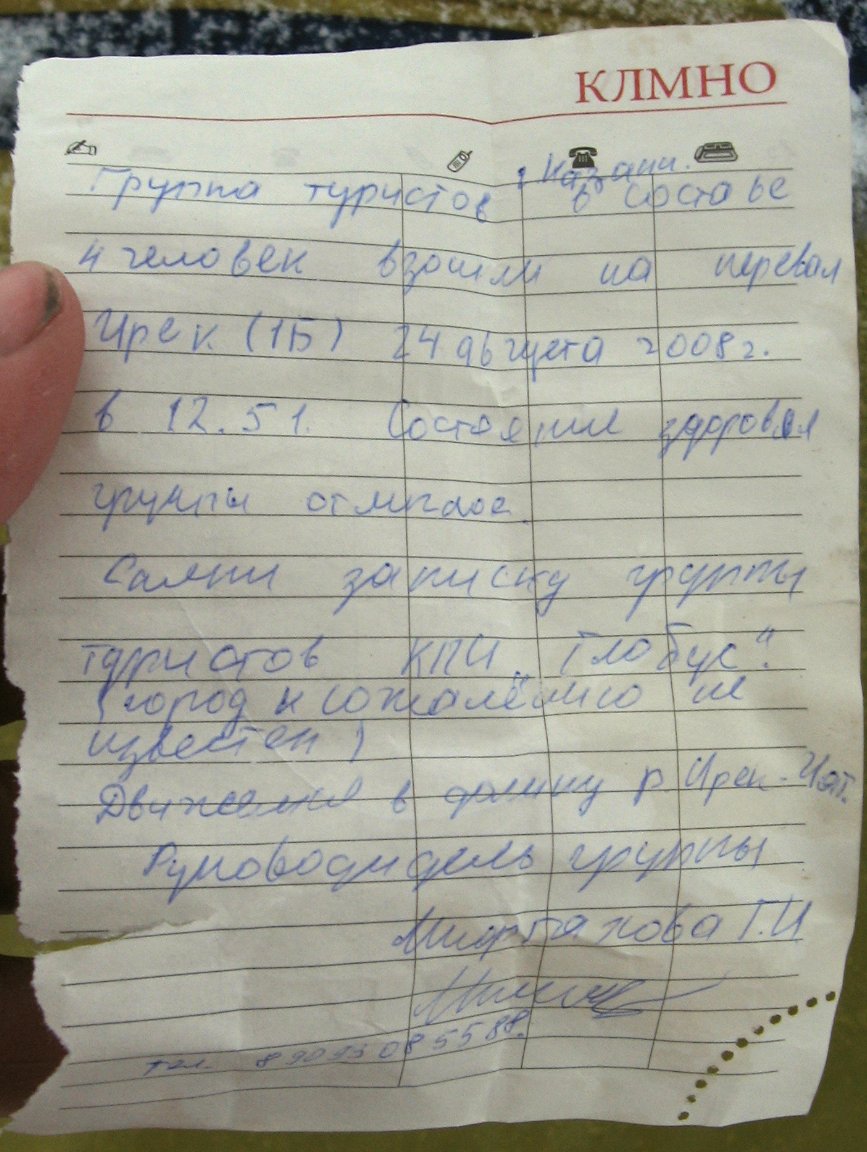 КЛМНО
г. Казани.
Группа туристов в составе
4 человек взошли на перевал
Ирек (1Б) 24 августа 2008 г.
в 12.51. Состояние здоровья
группы отличное.
Сняли записку группы
туристов КПИ „Глобус".
(город к сожалению не
известен)
Движемся в долину р Ирек-Чат.
Руководитель группы
Г.И
тел.